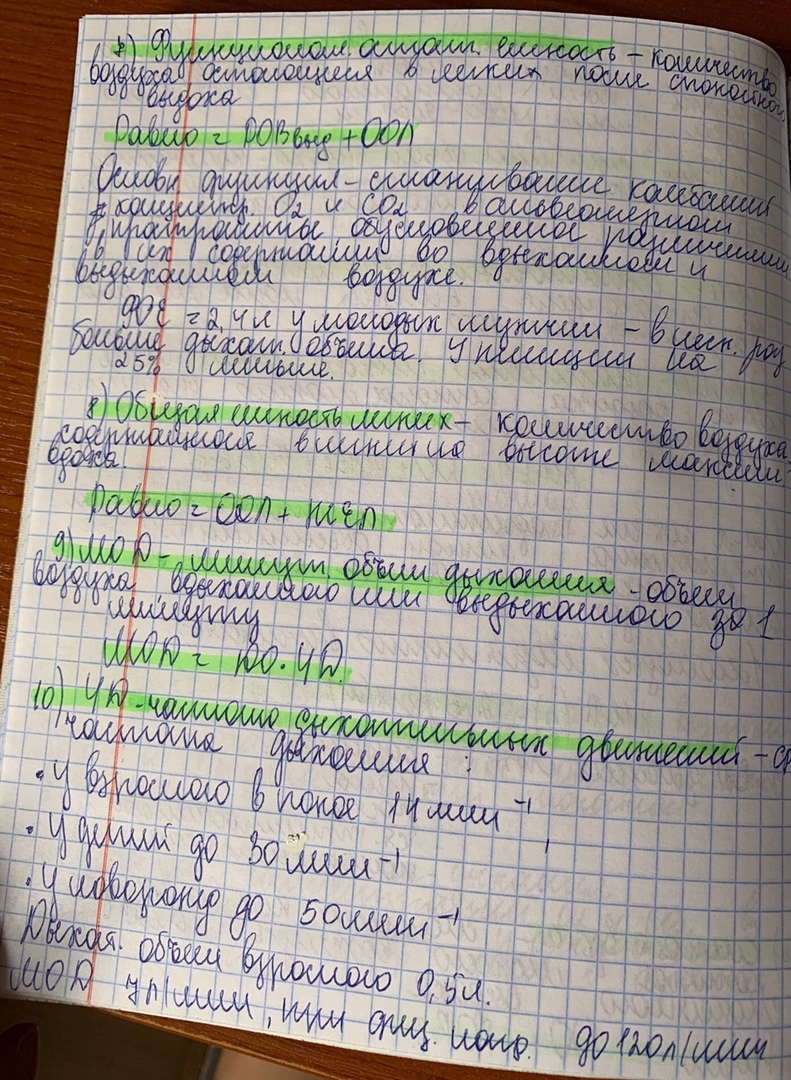 7) Функционал. остат. ёмкость – количество
воздуха остающееся в легких после спокойного
выдоха
Равно = РОВвыд + ООЛ
Основн функция – сглаживание колебаний
концентр. O2 и CO2 в альвеолярном
пространстве обусловленное различиями
в их содержании во вдыхаемом и
выдыхаемом воздухе.
ФОЕ = 2,4 л у молодых мужчин – в неск. раз
больше дыхат. объема. У женщин на
25% меньше.
8) Общая ёмкость легких – количество воздуха
содержащегося в легких на высоте максим
вдоха.
Равно = ООЛ + ЖЕЛ
9) МОД – минут. объем дыхания – объем
воздуха вдыхаемого или выдыхаемого за 1
минуту
МОД = ДО · ЧД.
10) ЧД – частота дыхательных движений – ср
частота дыхания :
• У взрослого в покое 14 мин⁻¹
• У детей до 30 мин⁻¹
• У новорожд до 50 мин⁻¹
Дыхат. объем взрослого 0,5 л.
МОД 7 л/мин, при физ. нагр. до 120 л/мин